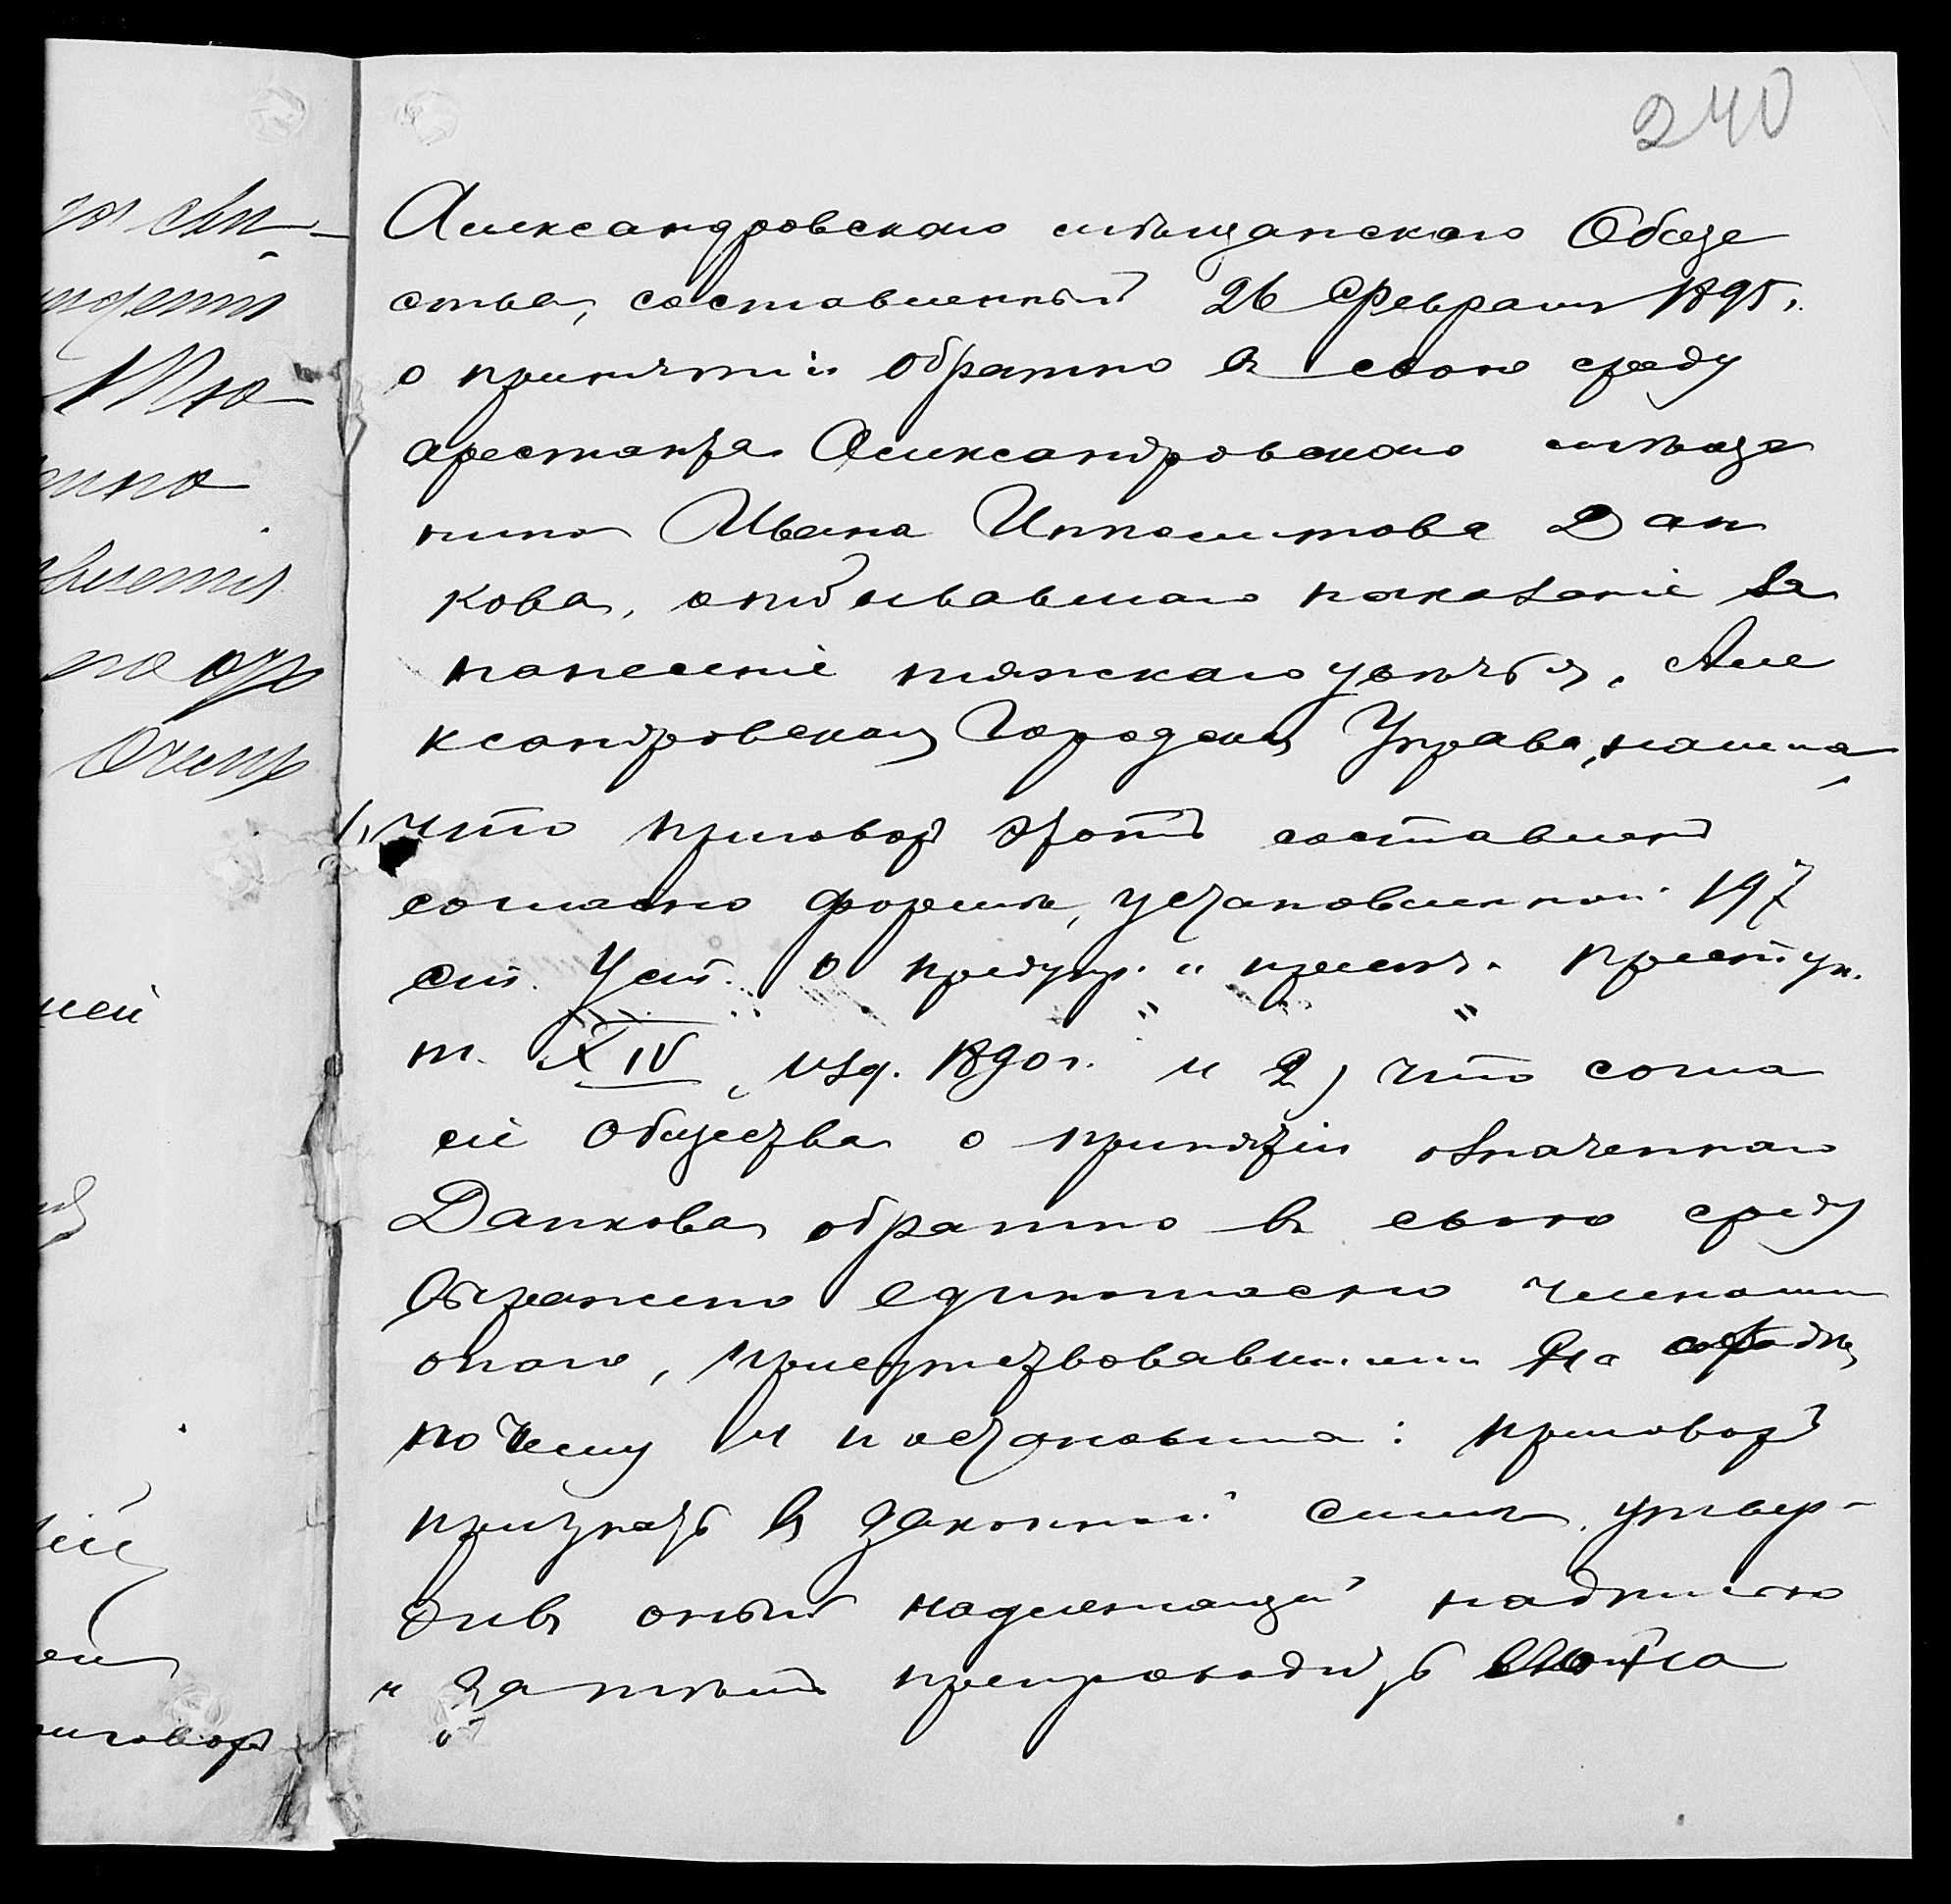 240
Александровскаго мѣщанскаго Обще
ства, составленный 26 Февраля 1895 г.
о принятіи обратно въ свою среду
арестанта Александровскаго мѣща
нина Ивана Ипполитова Дан
кова, отбывавшаго наказаніе за
нанесеніе тяжкаго увѣчья, Але
ксандровская Городская Управа, нашла,
1, что приговоръ этотъ составленъ
согласно формѣ, установленной 197
ст. Уст. о предупр. и пресѣч. преступ.
т. XIV, изд. 1890 г. и 2, что согла
сіе общества о принятіи означеннаго
Данкова обратно въ свою среду
выражено единогласно членами
онаго, присутствовавшими на сходѣ,
почему и постановила: приговоръ
признать въ законной силѣ, утвер-
дивъ оный надлежащей надписью
и затѣмъ препроводить
ней
риговоръ